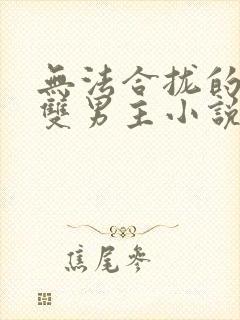 無法合拢的
雙男主小説
焦尾參